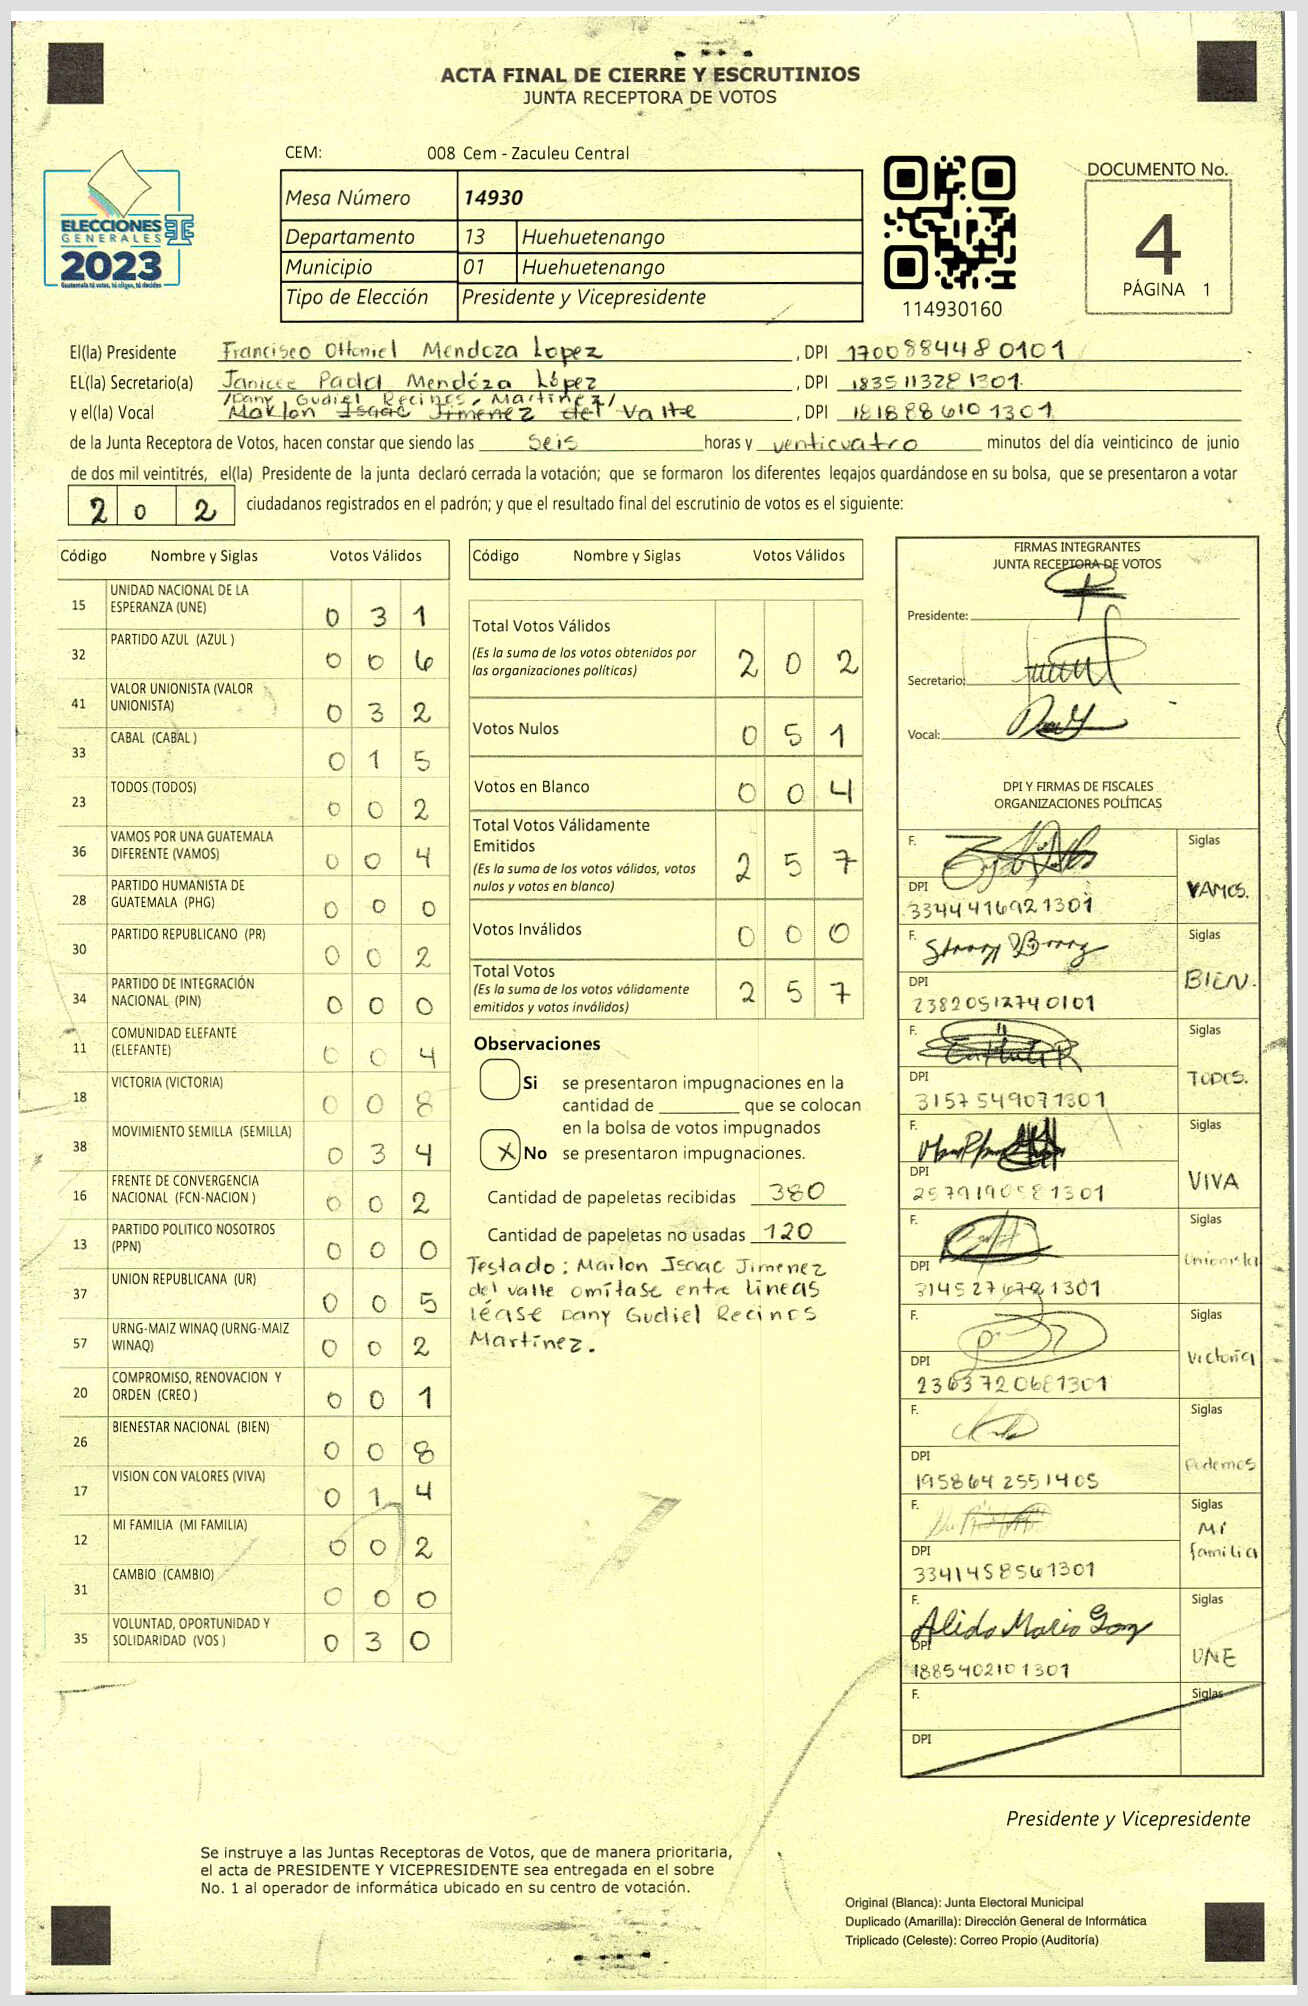 ACTA FINAL DE CIERRE Y ESCRUTINIOS
JUNTA RECEPTORA DE VOTOS
CEM: 008 Cem - Zaculeu Central
ELECCIONES
GENERALES
2023
Guatemala tú votas, tú eliges, tú decides
Mesa Número 14930
Departamento 13 Huehuetenango
Municipio 01 Huehuetenango
Tipo de Elección Presidente y Vicepresidente
114930160
DOCUMENTO No.
4
PÁGINA 1
El(la) Presidente Francisco Ottoniel Mendoza Lopez, DPI 1700884480101
EL(la) Secretario(a) Janicee Padd Mendóza López, DPI 1835113281301
/Dany Gudiel Recinos Martínez/
y el(la) Vocal Marlon Isaac Jimenez del Valle, DPI 1818886101301
de la Junta Receptora de Votos, hacen constar que siendo las seis horas y venticuatro minutos del día veinticinco de junio
de dos mil veintitrés, el(la) Presidente de la junta declaró cerrada la votación; que se formaron los diferentes legajos guardándose en su bolsa, que se presentaron a votar
2 0 2 ciudadanos registrados en el padrón; y que el resultado final del escrutinio de votos es el siguiente:
Código Nombre y Siglas Votos Válidos
15 UNIDAD NACIONAL DE LA ESPERANZA (UNE) 0 3 1
32 PARTIDO AZUL (AZUL ) 0 0 6
41 VALOR UNIONISTA (VALOR UNIONISTA) 0 3 2
33 CABAL (CABAL ) 0 1 5
23 TODOS (TODOS) 0 0 2
36 VAMOS POR UNA GUATEMALA DIFERENTE (VAMOS) 0 0 4
28 PARTIDO HUMANISTA DE GUATEMALA (PHG) 0 0 0
30 PARTIDO REPUBLICANO (PR) 0 0 2
34 PARTIDO DE INTEGRACIÓN NACIONAL (PIN) 0 0 0
11 COMUNIDAD ELEFANTE (ELEFANTE) 0 0 4
18 VICTORIA (VICTORIA) 0 0 8
38 MOVIMIENTO SEMILLA (SEMILLA) 0 3 4
16 FRENTE DE CONVERGENCIA NACIONAL (FCN-NACION ) 0 0 2
13 PARTIDO POLITICO NOSOTROS (PPN) 0 0 0
37 UNION REPUBLICANA (UR) 0 0 5
57 URNG-MAIZ WINAQ (URNG-MAIZ WINAQ) 0 0 2
20 COMPROMISO, RENOVACION Y ORDEN (CREO ) 0 0 1
26 BIENESTAR NACIONAL (BIEN) 0 0 8
17 VISION CON VALORES (VIVA) 0 1 4
12 MI FAMILIA (MI FAMILIA) 0 0 2
31 CAMBIO (CAMBIO) 0 0 0
35 VOLUNTAD, OPORTUNIDAD Y SOLIDARIDAD (VOS ) 0 3 0
Código Nombre y Siglas Votos Válidos
Total Votos Válidos 2 0 2
(Es la suma de los votos obtenidos por
las organizaciones políticas)
Votos Nulos 0 5 1
Votos en Blanco 0 0 4
Total Votos Válidamente
Emitidos 2 5 7
(Es la suma de los votos válidos, votos
nulos y votos en blanco)
Votos Inválidos 0 0 0
Total Votos 2 5 7
(Es la suma de los votos válidamente
emitidos y votos inválidos)
Observaciones
Si se presentaron impugnaciones en la
cantidad de ________ que se colocan
en la bolsa de votos impugnados
X No se presentaron impugnaciones.
Cantidad de papeletas recibidas 380
Cantidad de papeletas no usadas 120
Testado: Marlon Isaac Jimenez
del valle omítase entre lineas
léase Dany Gudiel Recinos
Martínez.
FIRMAS INTEGRANTES
JUNTA RECEPTORA DE VOTOS
Presidente:
Secretario:
Vocal:
DPI Y FIRMAS DE FISCALES
ORGANIZACIONES POLÍTICAS
F. Siglas
DPI VAMOS.
3344416921301
F. Siglas
DPI BIEN.
2382051274 0101
F. Siglas
DPI TODOS.
3157549071301
F. Siglas
DPI VIVA
2579190581301
F. Siglas
DPI Unionista
3145276721301
F. Siglas
DPI Victoria
2363720681301
F. Siglas
DPI Podemos
1958642551405
F. Siglas
Mi
DPI familia
3341458561301
F. Siglas
Alido Mario
DPI UNE
1885402101301
F. Siglas
DPI
Presidente y Vicepresidente
Se instruye a las Juntas Receptoras de Votos, que de manera prioritaria,
el acta de PRESIDENTE Y VICEPRESIDENTE sea entregada en el sobre
No. 1 al operador de informática ubicado en su centro de votación.
Original (Blanca): Junta Electoral Municipal
Duplicado (Amarilla): Dirección General de Informática
Triplicado (Celeste): Correo Propio (Auditoría)